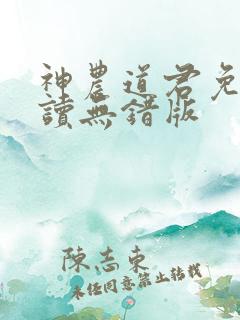 神農道君免
讀無錯版
陳志東
未任同意禁止转载